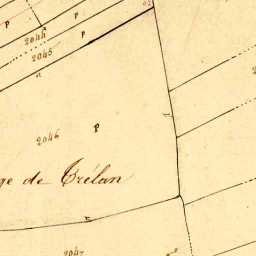 P
P
2044
P
2045
2046 P
ge de Trélan
2047